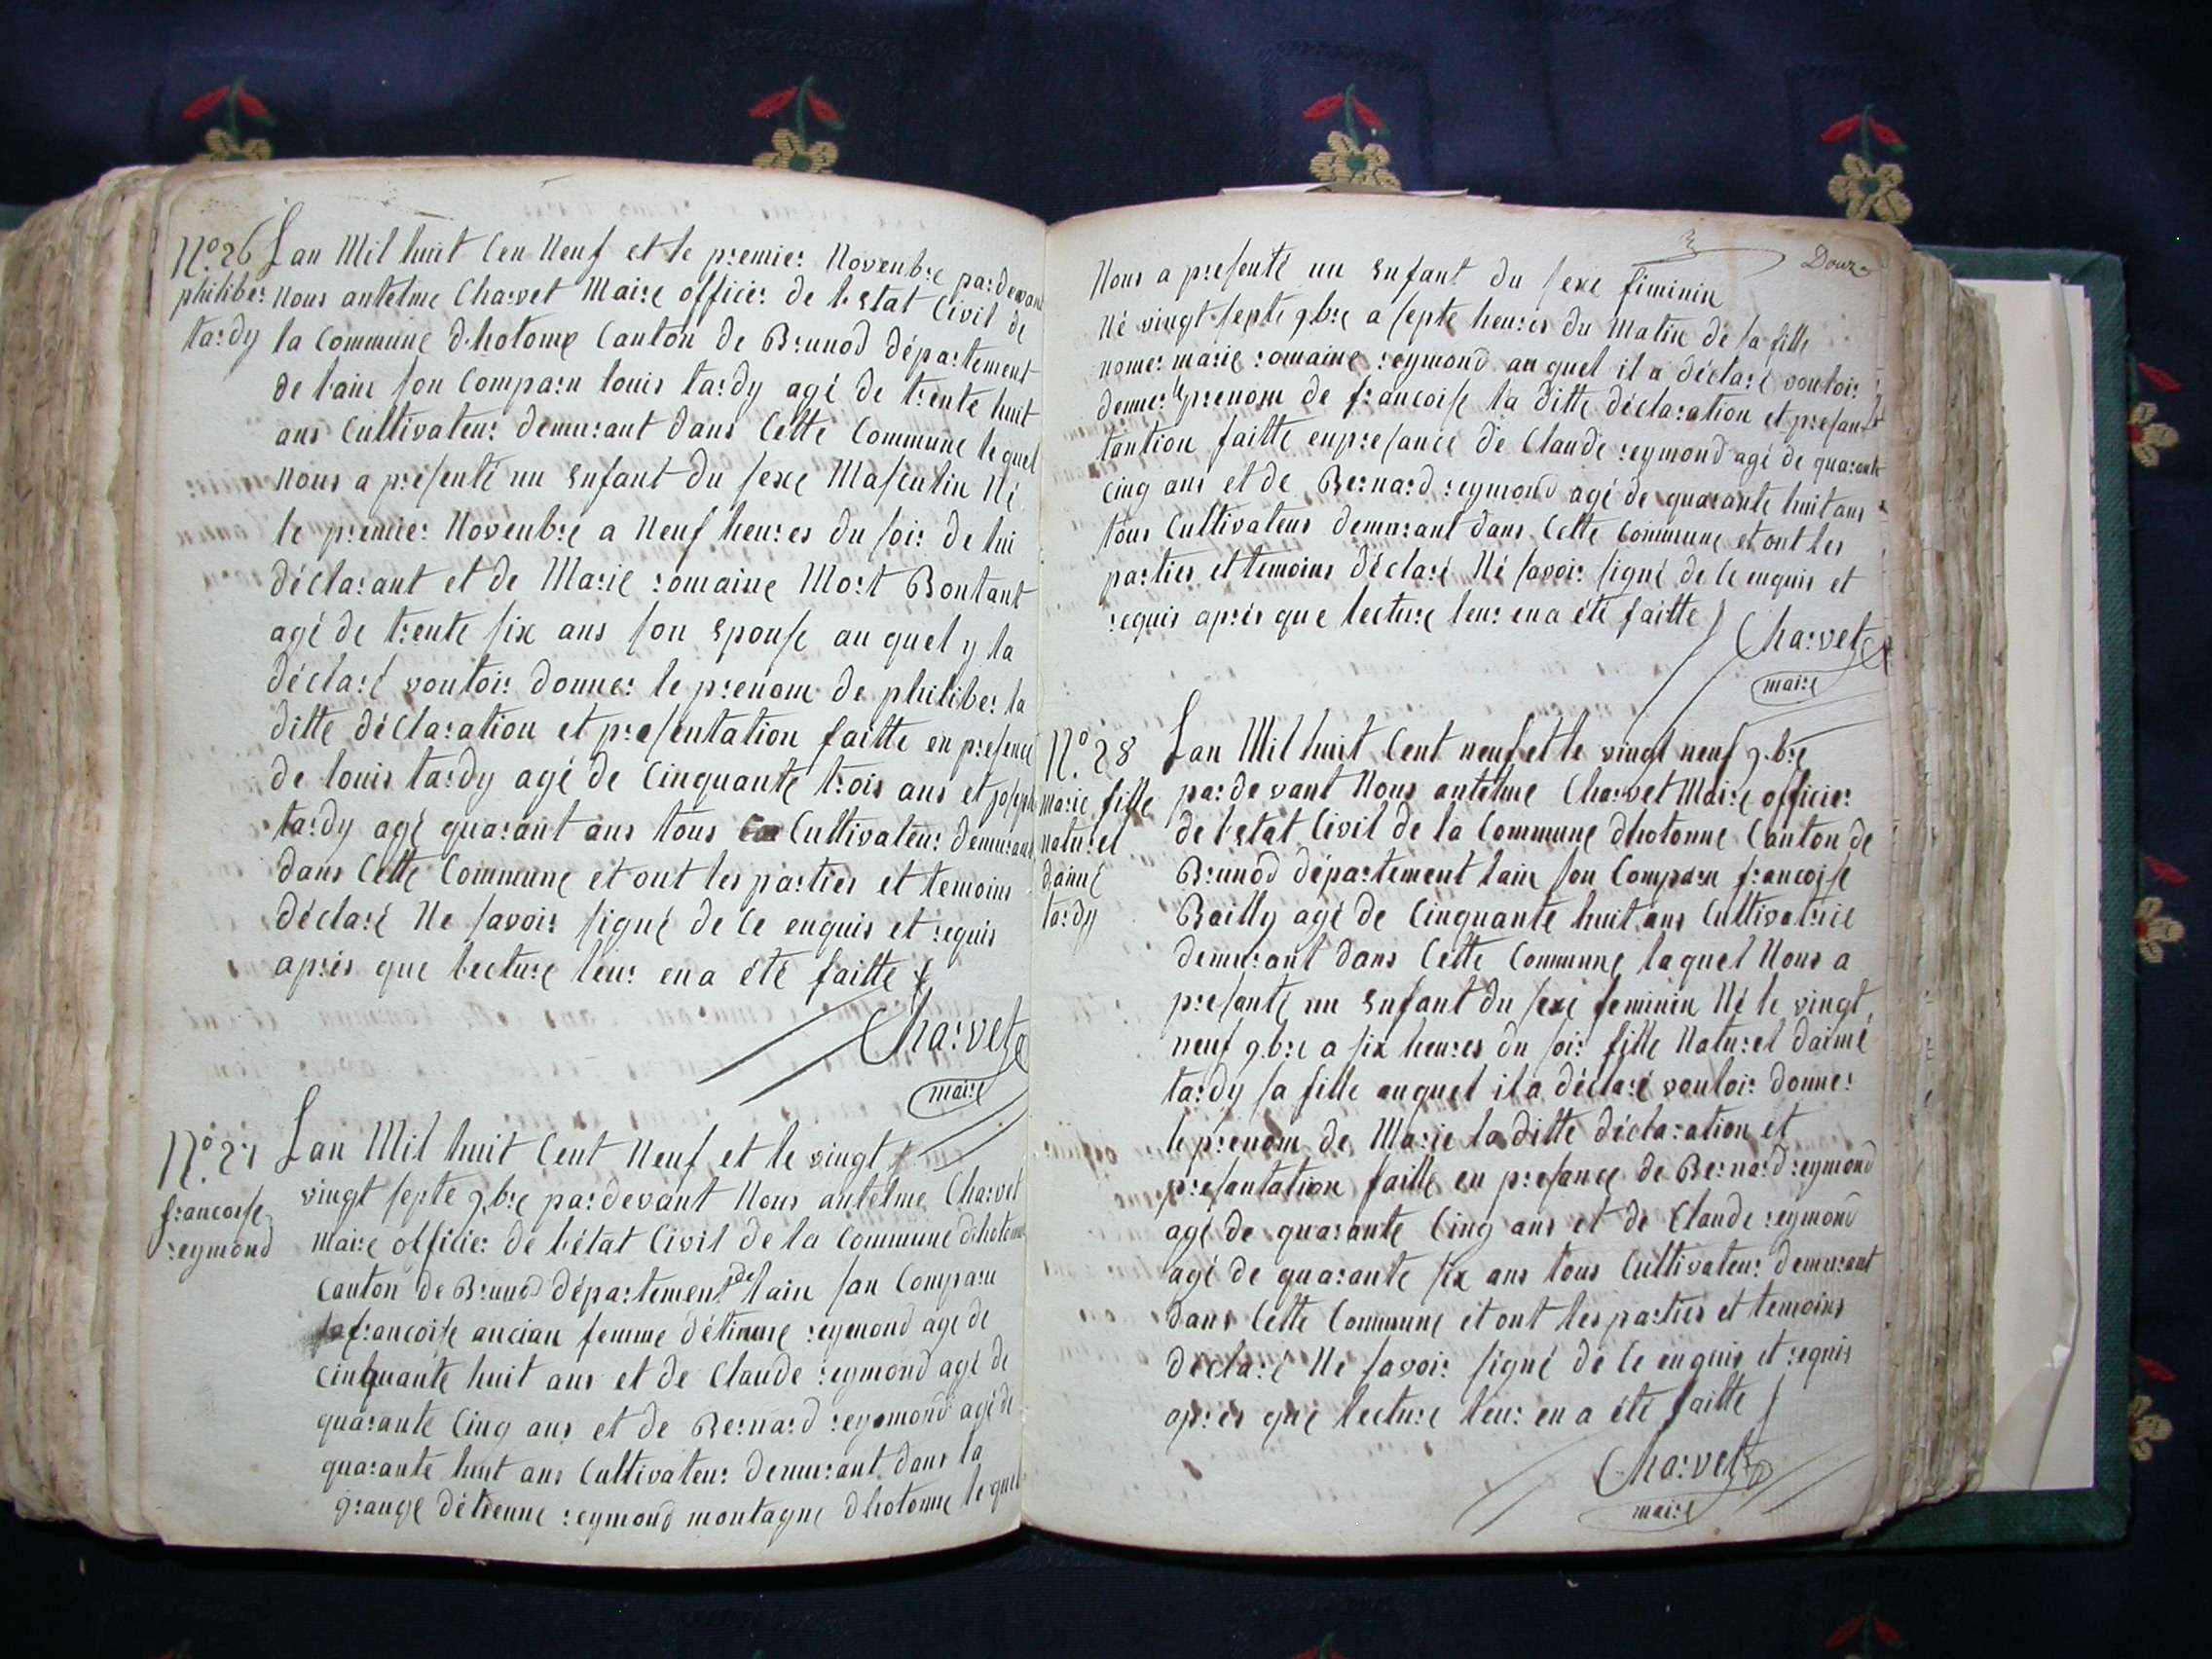 N.º 26 Lan Mil huit Cen Neuf et le premier Novenbre pardevant
philiber Nous antelme Charvet Maire officier de l'Estat Civil de
tardy la Commune d'hotome Canton de Brunod département
de lain son Comparu louis tardy agé de trente huit
ans Cultivateur demurant dans Cette Commune le quel
Nous a presenté un Enfant du sexe Masculin Né
le premier Novenbre a Neuf heures du soir de lui
déclarant et de Marie romaine Mort Bontant
agé de trente six ans son Epouse au quel y la
déclaré vouloir donner le prenom de philiber la
ditte déclaration et presentation faitte en presence
de louis tardy agé de Cinquante trois ans et joseph
tardy agé quarant ans tous Cultivateur demurant
dans Cette Commune et ont les parties et temoins
déclaré Ne savoir signé de Ce enquis et requis
aprés que lecture leur en a été faitte
Charvet
maire
N.º 27 Lan Mil huit Cent Neuf et le vingt
vingt septe 9.bre pardevant Nous antelme Charvet
francoise maire officier de l'état Civil de la Commune dhotome
reymond Canton de Brunod département de lain san Comparu
francoise ancian femme détienne reymond age de
cinquante huit ans et de Claude reymond agé de
quarante Cinq ans et de Bernard reymond agé de
quarante huit ans Cultivateur demurant dans la
grange détienne reymond montagne dhotonne le quel
Douze
Nous a presenté un Enfant du sexe féminin
Né vingt septe 9.bre a septe heures du Matin de sa fille
nomer marie romaine reymond au quel il a déclaré vouloir
denner le prenom de francoise la ditte déclaration et presan
tantion faitte en presance de Claude reymond agé de quarante
cinq ans et de Bernard reymond agé de quarante huit ans
tous Cultivateurs demurant dans Cette Commune et ont les
parties et temoins déclaré Né savoir signé de Ce enquis et
requis aprés que lecture leur en a été faitte
Charvet
maire
N.º 28 Lan Mil huit Cent neuf et le vingt neuf 9.bre
marie fille pardevant Nous antelme Charvet Maire officier
naturel de l'Estat Civil de la Commune dhotonne Canton de
daimé Brunod département lain son Comparu francoise
tardy Bailly agé de Cinquante huit ans Cultivatrice
demurant dans Cette Commune laquel Nous a
presanté un Enfant du sexe feminin Né le vingt
neuf 9.bre a six heures du soir fille Naturel daimé
tardy sa fille auquel il a déclaré vouloir donner
le prenom de Marie la ditte déclaration et
presantation faitte en presance de Bernard reymond
agé de quarante Cinq ans et de Claude reymond
agé de quarante six ans tous Cultivateur demurant
dans Cette Commune et ont les parties et temoins
déclaré Né savoir signé de Ce enquis et requis
aprés que lecture leur en a été faitte
Charvet
maire